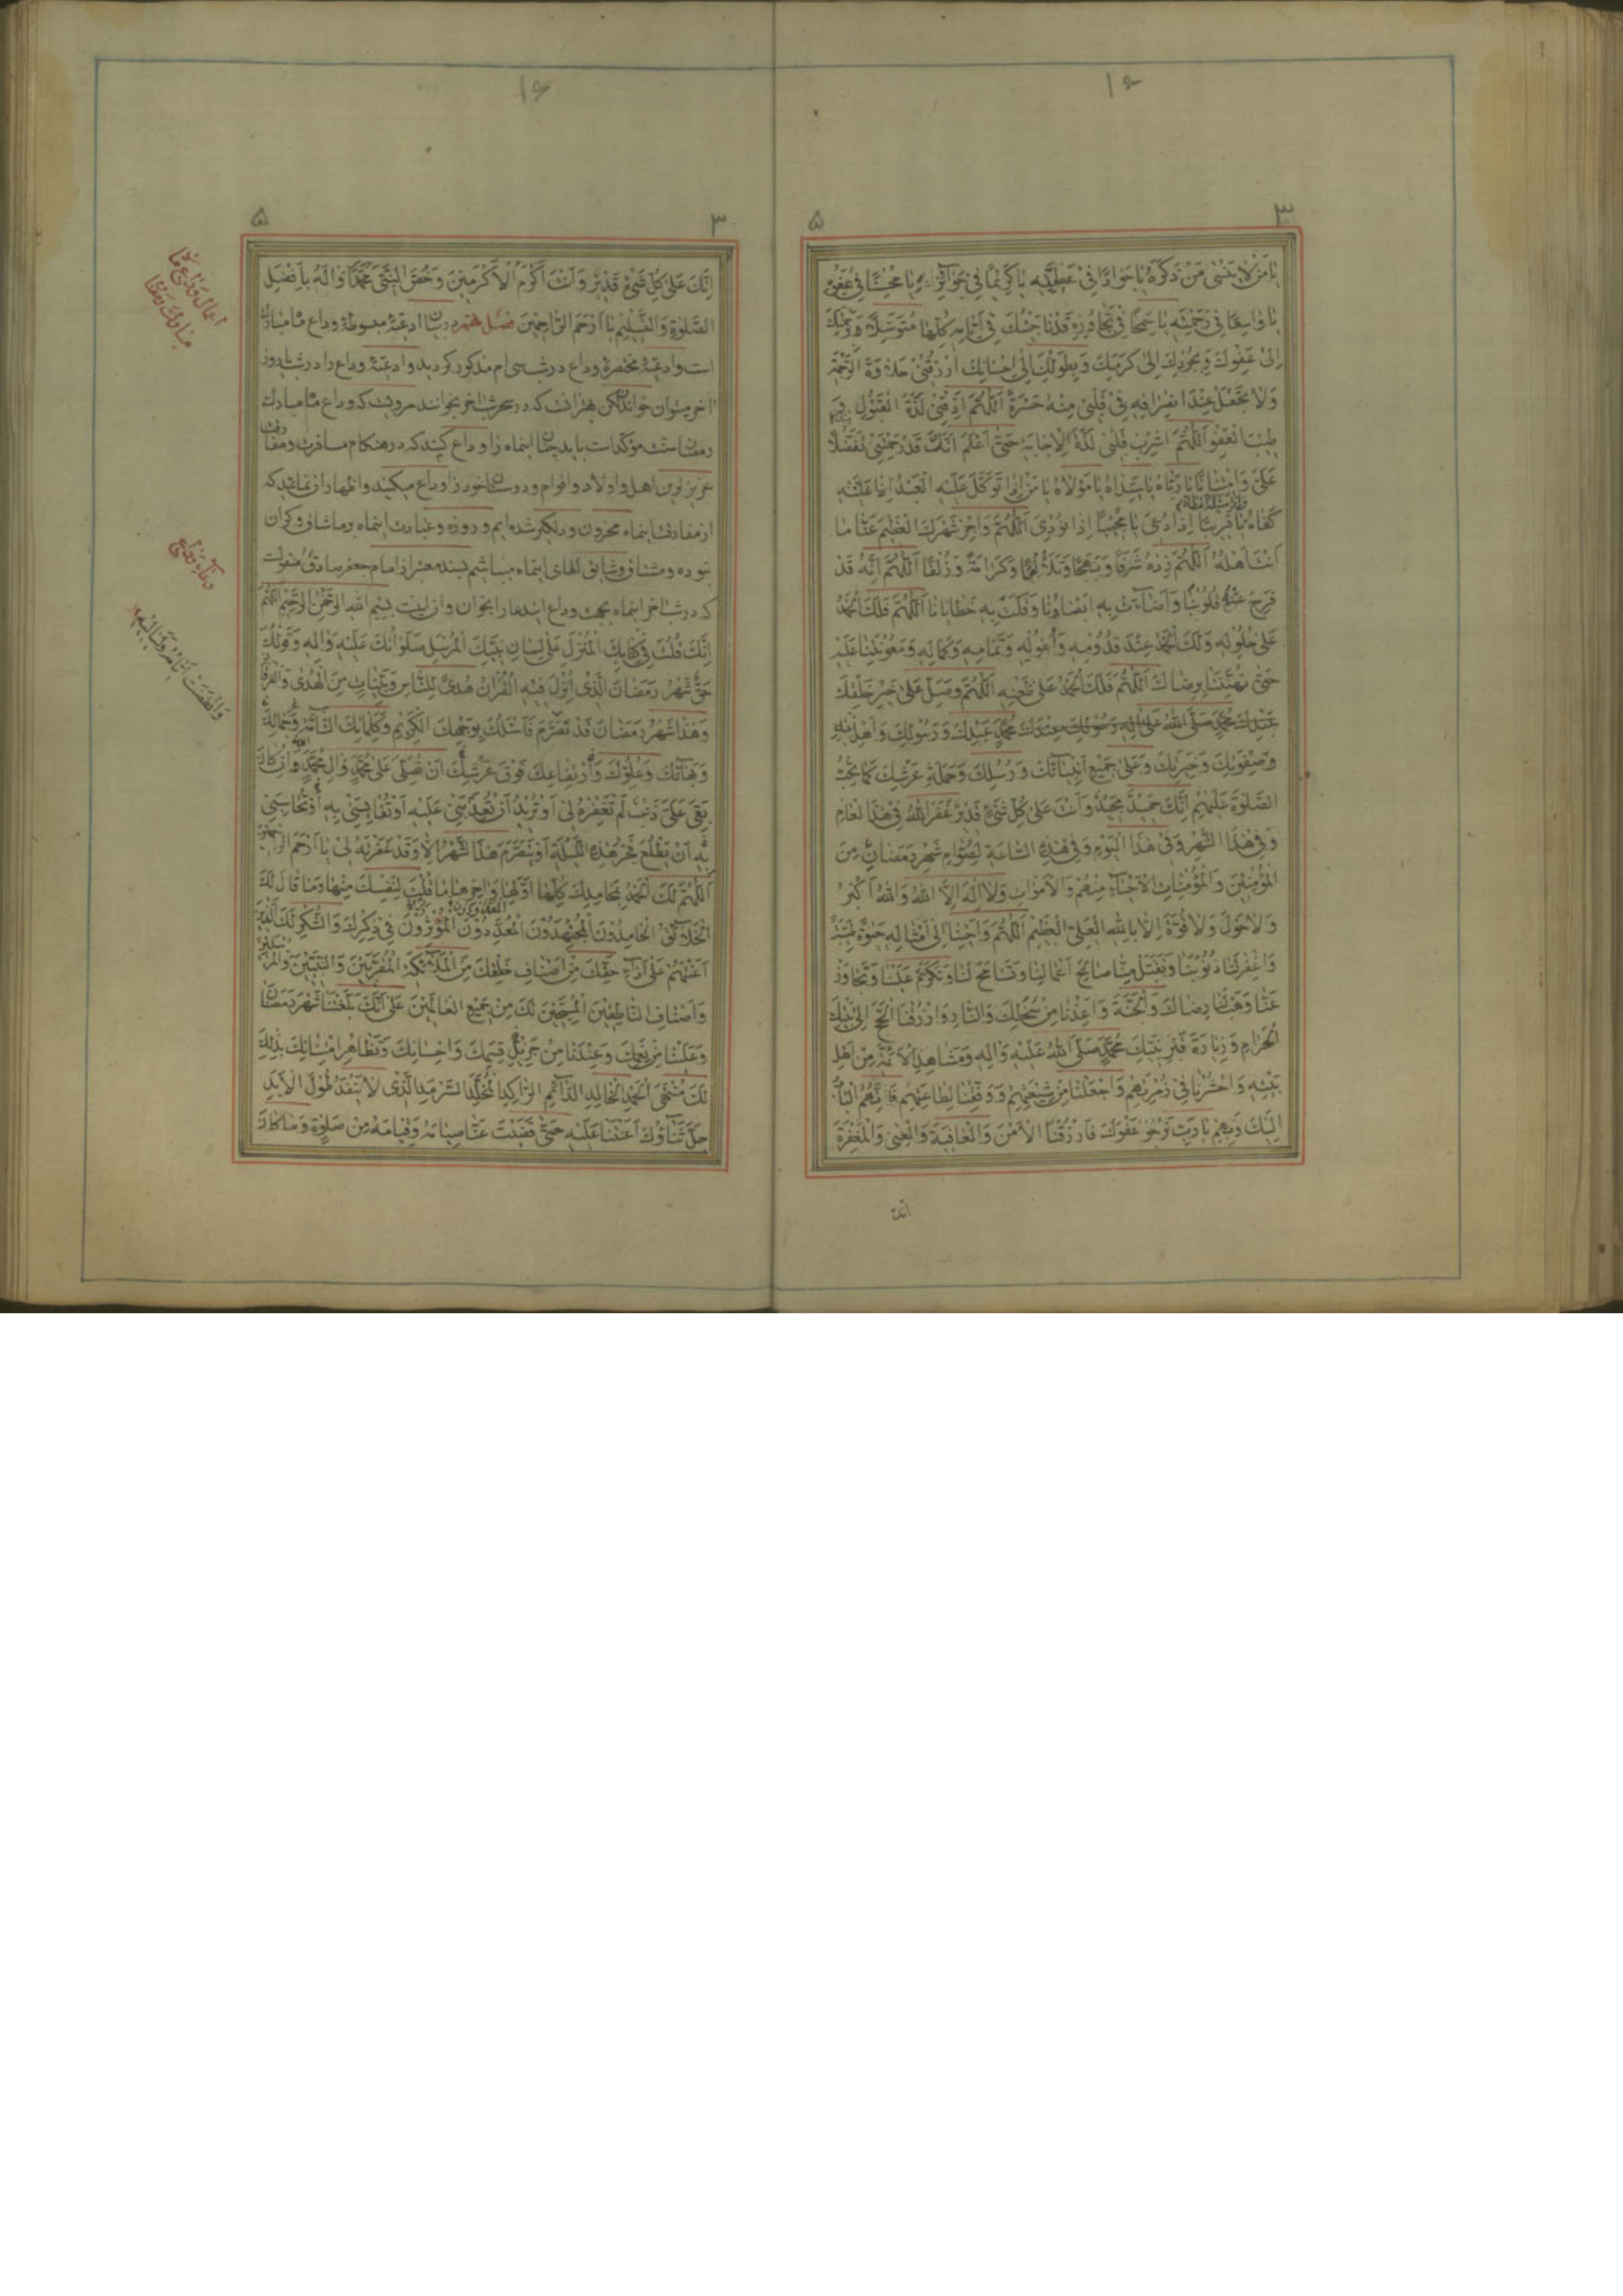 ۱۶
۳ ۵
يا من لا ينسى من ذكره يا جوادا في عطيته يا كريما في يا محسنا في عفوه
يا واسعا في رحمته يا سمحا في تجاوزه قد جئتك في كلها متوسلا
الى عفوك وبجودك الى كرمك وبطولك الى احسانك ارزقني حلاوة الرحمة
ولا تجعل عند انصرافه في قلبي منه حسرة اللهم اذقني لذة القبول
العفو اللهم اشرب قلبي لذة الاجابة حتى اعلم انك قد رحمتني تفضلا
علي وامتنانا يا رباه يا سيداه يا مولاه يا من اذا توكل عليه العبد
كفاه يا قريبا اذا دعي يا مجيبا اذا نودي اللهم واجز شهرك العظيم عنا ما
انت اهله اللهم زده شرفا وكرامة وزلفا اللهم انه قد
قلوبنا واضاءت به ابصارنا وفلت به خطايانا اللهم فلك الحمد
على حلوله ولك الحمد عند قدومه وافوله وتمامه وكماله ومعونتنا عليه
حتى تهنئنا برضاك اللهم فلك الحمد على اللهم وصل على خير خلقك
محمد عبدك ورسولك واهل بيته
وصفوتك وخيرتك وعلى جميع انبيائك ورسلك وحملة عرشك كما تحب
الصلوة عليهم انك حميد مجيد وانت على كل شيء قدير غفر الله في هذا العام
وفي هذا الشهر وفي هذا اليوم وفي هذه الساعة لصوام شهر رمضان من
المؤمنين والمؤمنات الاحياء منهم والاموات ولا اله الا الله والله اكبر
ولا حول ولا قوة الا بالله العلي العظيم اللهم واحينا الى امثاله
واغفر لنا ذنوبنا وتقبل منا صالح اعمالنا وتسامح لنا وتكرم علينا وتجاوز
عنا وهب لنا رضاك والجنة واعذنا من سخطك والنار وارزقنا الحج الى بيتك
الحرام وزيارة قبر نبيك محمد صلى الله عليه واله ومشاهد الائمة من اهل
بيته واحشرنا في زمرتهم واجعلنا من شيعتهم ووفقنا لطاعتهم
اليك وبهم يا رب نرجو عفوك فارزقنا الامن والعافية والغنى والمغفرة
انك
۱۶
۳ ۵
انك على كل شيء قدير وانت اكرم الاكرمين وخص النبي محمدا واله بافضل
الصلوة والتسليم يا ارحم الراحمين فصل ادعيه مبسوطه وداع ماه مبارك
است وادعيه مختصره وداع در شب سى ام مذكور كرديد وادعيه وداع را در شب يا روز
اخر ميتوان خواند ليكن بهتر انست كه در سحر شب اخر بخوانند مرويست كه وداع ماه مبارك
رمضان سنت مؤكد است بايد چنان اينماه را وداع كنند كه در هنكام مسافرت
عزيزترين اهل واولاد واقوام ودوستان خود را وداع ميكنند واظهار نمايند كه
از مفارقت اينماه محزون ودلكير شده ايم وروزه وعبادت اينماه بر ما شاق وكران
نبوده ومشتاق وشايق لقاى اينماه ميباشيم بسند معتبر از امام جعفر صادق ع منقولست
كه در شب اخر اينماه بجهت وداع ايندعا را بخوان واز اينست بسم الله الرحمن الرحيم اللهم
انك قلت في كتابك المنزل على لسان نبيك المرسل صلواتك عليه واله وقولك
حق شهر رمضان الذي انزل فيه القران هدى للناس وبينات من الهدى والفرقان
وهذا شهر رمضان قد تصرم فاسئلك بوجهك الكريم وكلماتك التامة وجمالك
وبهائك وعلوك وارتفاعك فوق عرشك ان تصلي على محمد وال محمد وان كان
بقي علي ذنب لم تغفره لي او تريد ان تعذبني عليه او تقايسني به او تحاسبني
به ان يطلع فجر هذه الليلة او يتصرم هذا الشهر الا وقد غفرته لي يا ارحم الراحمين
اللهم لك الحمد بمحامدك كلها اولها واخرها ما قلت لنفسك منها وما قال لك
الخلائق الحامدون المجتهدون المعددون المؤثرون في ذكرك والشكر لك الذين
اعنتهم على اداء حقك من اصناف خلقك من الملائكة المقربين والنبيين والمرسلين
واصناف الناطقين المسبحين لك من جميع العالمين على انك بلغتنا شهر رمضان
وعلينا من نعمك وعندنا من جزيل قسمك واحسانك وتظاهر امتنانك بذلك
لك منتهى الحمد الخالد الدائم الراكد المخلد السرمد الذي لا ينفد طول الابد
جل ثناؤك اعنتنا عليه حتى قضيت عنا صيامه وقيامه من صلوة وما كان
اعمال وداع ماه
مبارك رمضان
دعاء وداع
وانقضت ايامه ولياليه